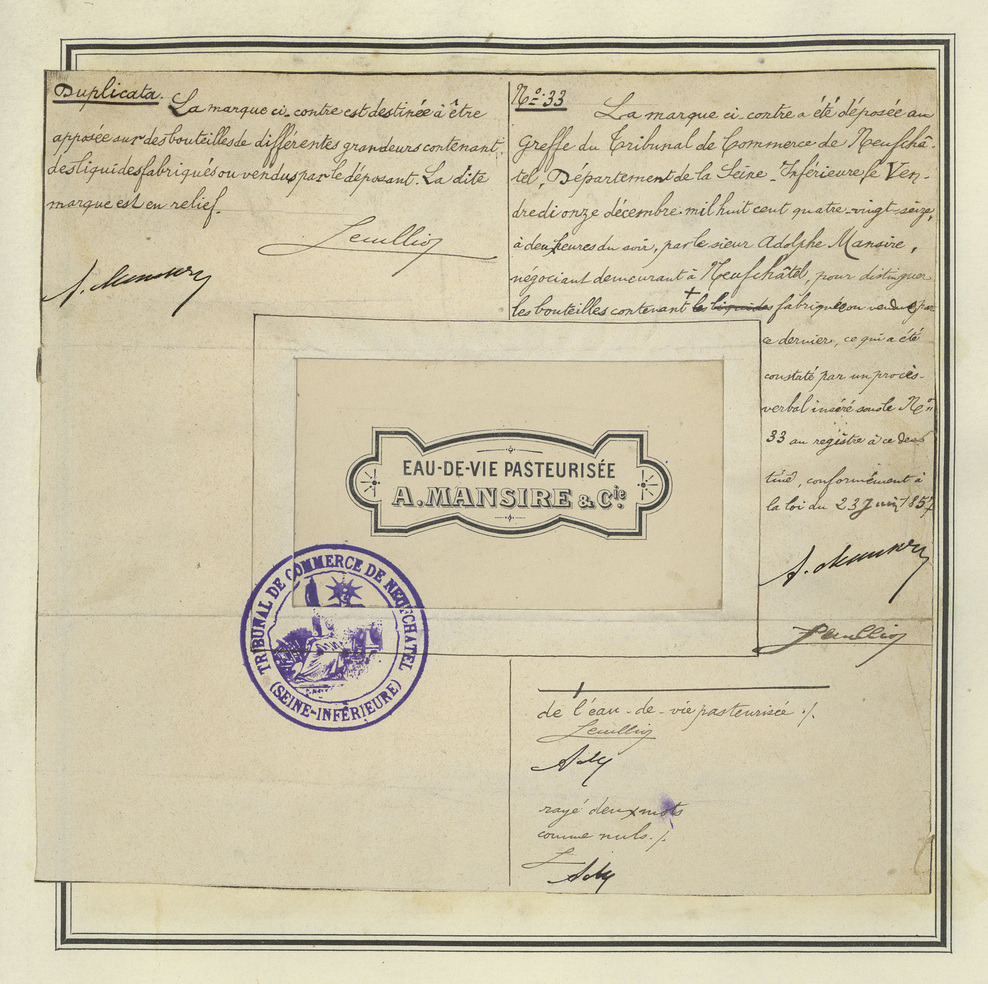 Duplicata. La marque ci-contre est destinée à être
apposée sur des bouteilles de différentes grandeurs contenant
des liquides fabriqués ou vendus par le déposant. La dite
marque est en relief.
Leullioy
A. Mansire
N° 33
La marque ci-contre a été déposée au
Greffe du Tribunal de Commerce de Neufchâ-
tel, Département de la Seine-Inférieure le Ven-
dredi onze décembre mil huit cent quatre-vingt-seize,
à deux heures du soir, par le sieur Adolphe Mansire,
négociant demeurant à Neufchâtel, pour distinguer
les bouteilles contenant + les liquides fabriquée ou vendue par
ce dernier, ce qui a été
constaté par un procès-
verbal inséré sous le N°
33 au registre à ce des-
tiné, conformément à
la loi du 23 Juin 1857
A. Mansire
EAU-DE-VIE PASTEURISÉE
A. MANSIRE & Cie
TRIBUNAL DE COMMERCE DE NEUFCHATEL
(SEINE-INFÉRIEURE)
+
de l'eau-de-vie pasteurisée ./.
rayé deux mots
comme nuls ./.